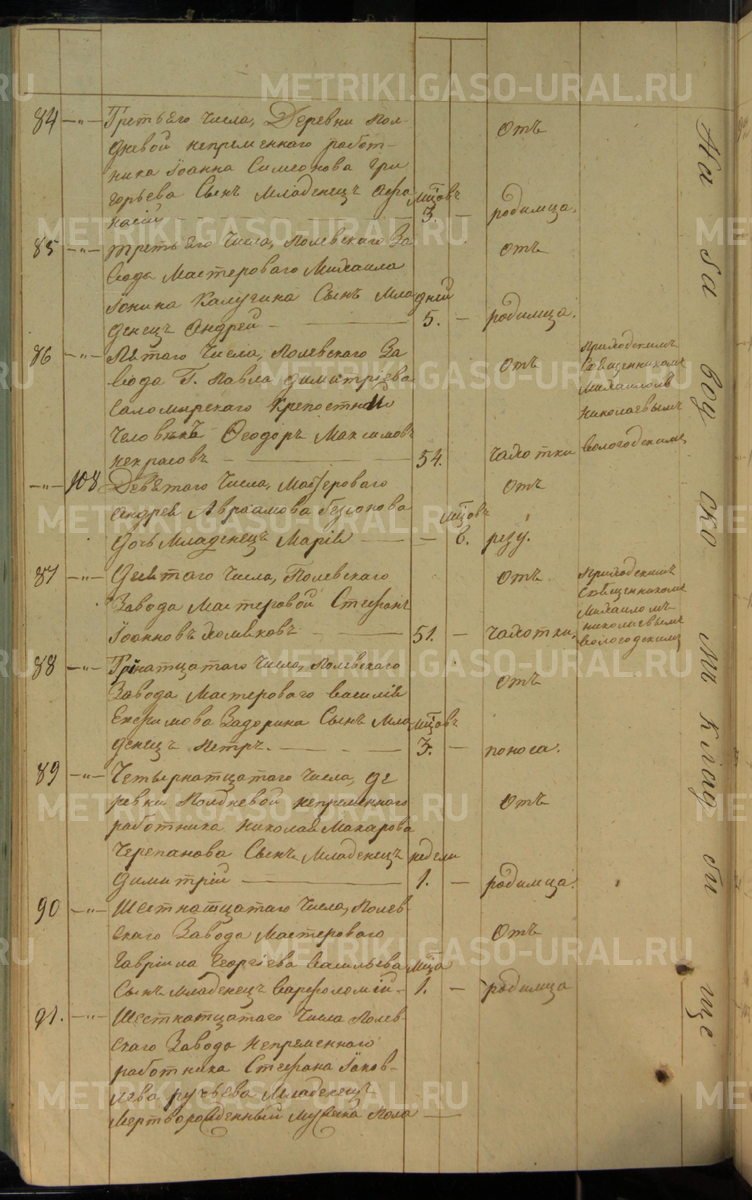 84 —"— Третьего Числа, Деревни Пол
дневой непременнаго работ-
ника Іоанна Симеонова Гри
горьева Сынъ Младенецъ Афа
насій
мцовъ
3. —
отъ
родимца.
85 —"— третьяго Числа, Полевскаго За
вода Мастероваго Михаила
Іонина Калугина Сынъ Мла
денецъ Андрей
дней
5. —
отъ
родимца.
86 —"— Пятаго Числа, Полевскаго За
вода Г. Павла Димитріева
Саломирскаго Крепостный
Человѣкъ Ѳеодоръ Максимовъ
Некрасовъ
54.
отъ
чахотки
Приходскимъ
Священникомъ
Михаиломъ
Николаевымъ
Вологодскимъ
—"— 108 Девятаго Числа, Мастероваго
Андрея Авраамова
дочь Младенецъ Марія
мцовъ
— 6.
отъ
резу.
87 —"— Девятаго Числа, Полевскаго
Завода Мастеровой Стефанъ
Іоанновъ
51. —
отъ
чахотки,
Приходскимъ
Священникомъ
Михаиломъ
Николаевымъ
Вологодскимъ
88 —"— Тринатцатаго Числа, Полевскаго
Завода Мастероваго Василія
Екеримова Задорина Сынъ Мла
денецъ Петръ.
мцовъ
3. —
отъ
поноса.
89 —"— Четырнатцатаго Числа, Де
ревни Полдневой непременнаго
работника Николая Макарова
Черепанова Сынъ Младенецъ
Димитрій
недели
1. —
отъ
родимца.
90 —"— Шестнатцатаго Числа, Полев-
скаго Завода Мастероваго
Гавріила Георгіева Васильева
Сынъ Младенецъ Варфоломій
мца
1. —
отъ
родимца
91. —"— Шестнатцатаго Числа Полев-
скаго Завода Непременнаго
работника Стефана Іаков-
лева Ручьева Младенецъ
Мертворожденный Мужска Пола
На заводскомъ кладбище
METRIKI.GASO-URAL.RU